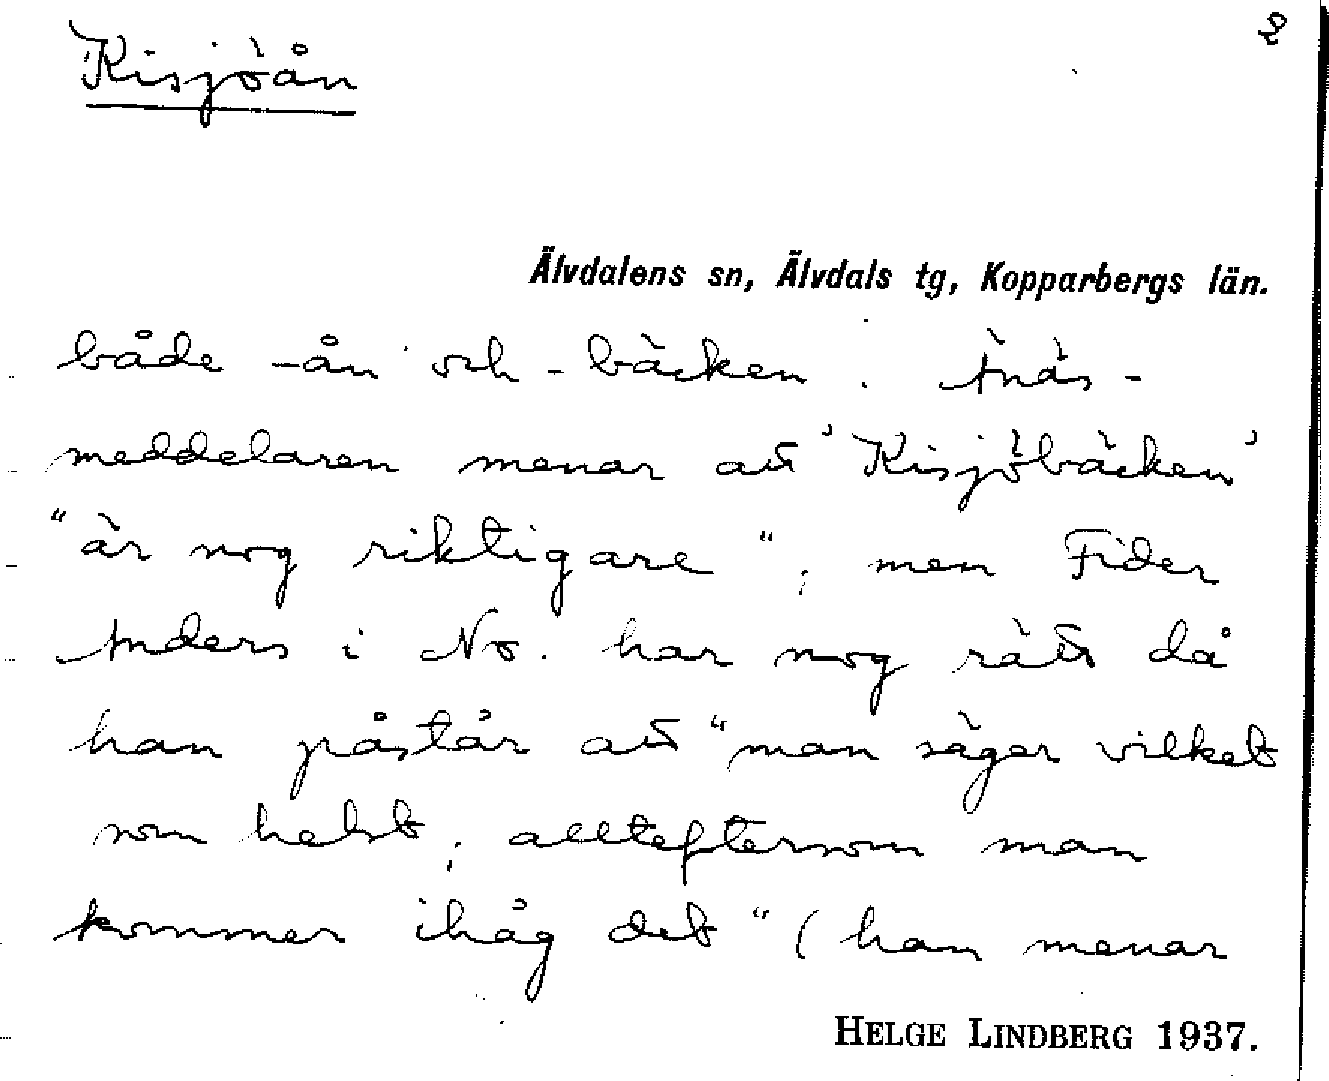 Kisjöån
2
Älvdalens sn, Älvdals tg, Kopparbergs län.
både -ån och -bäcken. Anäs-
meddelaren menar att 'Kisjöbäcken'
"är nog riktigare", men Fider
Anders i No. har nog rätt då
han påstår att "man säger vilket
som helst, alltefter som man
kommer ihåg det" (han menar
HELGE LINDBERG 1937.